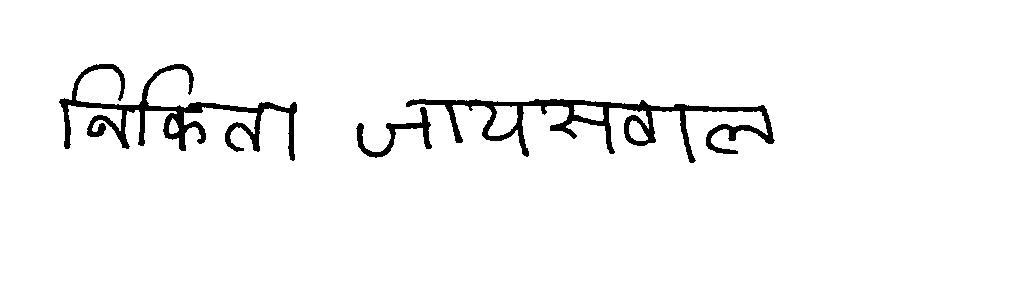 निकिता जायसवाल